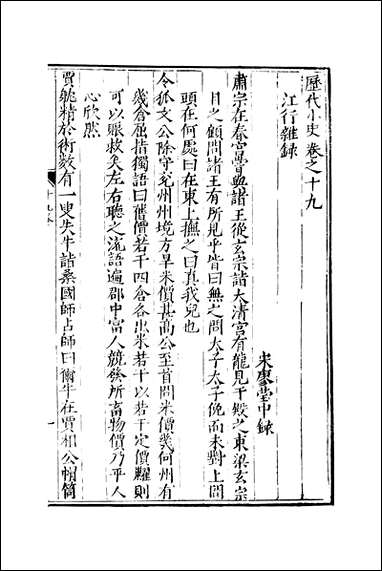 歷代小史卷之十九
江行雜錄
宋廖瑩中錄
肅宗在春宮嘗與諸王從玄宗詣大清宮有龍見于殿之東梁玄宗
目之顧問諸王有所見乎皆曰無之問太子太子俛而未對上問
頭在何處曰在東上撫之曰真我兒也
令狐文公除守兖州州境方旱米價甚高公至首問米價幾何州有
幾倉屈指獨語曰舊價若干四倉各出米若干以若干定價糶則
可以賑救矣左右聽之流語遍郡中富人競發所畜物價乃平人
心欣然
賈躭精於術數有一叟失牛詣桑國師占師曰爾牛在賈相公帽筒
十九卷
一